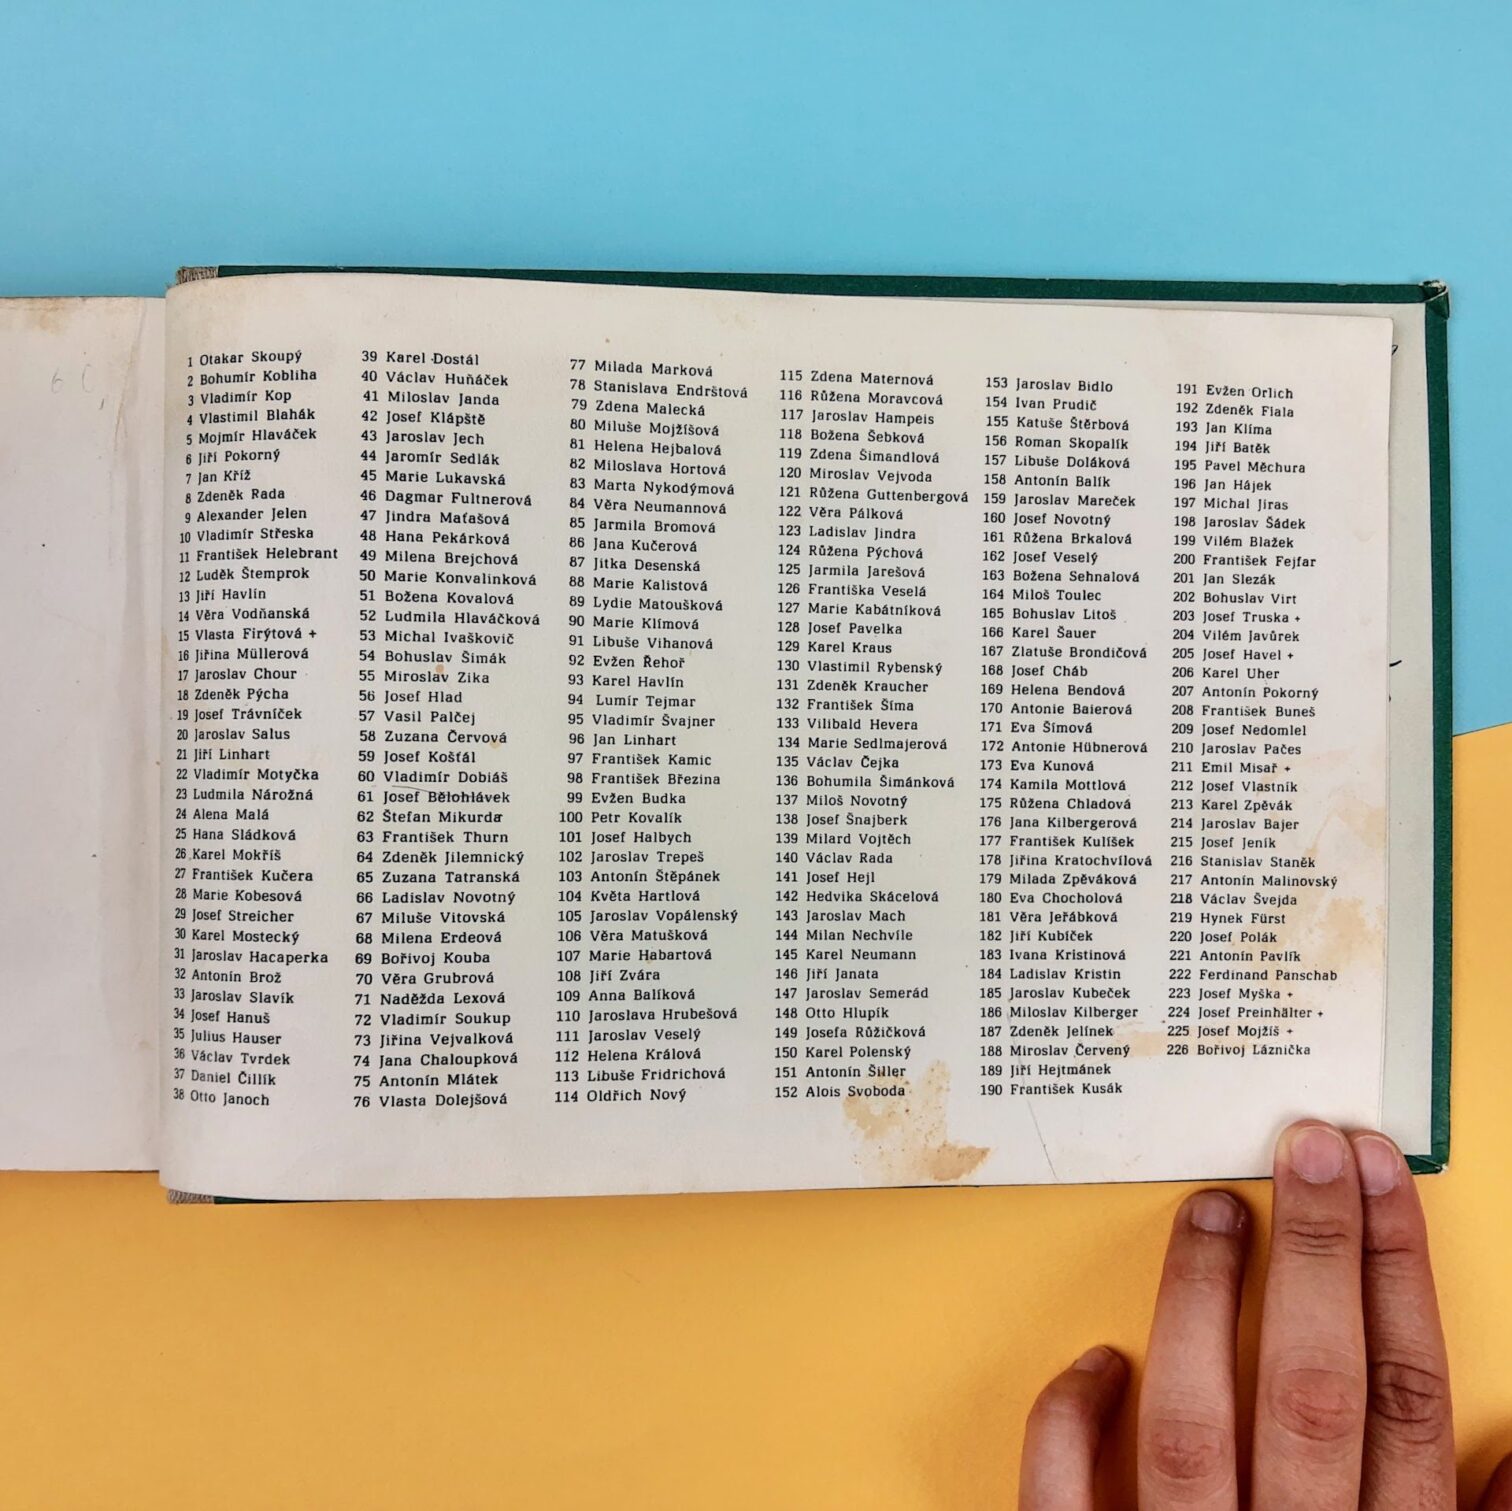 1 Otakar Skoupý
2 Bohumír Kobliha
3 Vladimír Kop
4 Vlastimil Blahák
5 Mojmír Hlaváček
6 Jiří Pokorný
7 Jan Kříž
8 Zdeněk Rada
9 Alexander Jelen
10 Vladimír Střeska
11 František Helebrant
12 Luděk Štemprok
13 Jiří Havlín
14 Věra Vodňanská
15 Vlasta Firýtová +
16 Jiřina Müllerová
17 Jaroslav Chour
18 Zdeněk Pýcha
19 Josef Trávníček
20 Jaroslav Salus
21 Jiří Linhart
22 Vladimír Motyčka
23 Ludmila Nárožná
24 Alena Malá
25 Hana Sládková
26 Karel Mokříš
27 František Kučera
28 Marie Kobesová
29 Josef Streicher
30 Karel Mostecký
31 Jaroslav Hacaperka
32 Antonín Brož
33 Jaroslav Slavík
34 Josef Hanuš
35 Julius Hauser
36 Václav Tvrdek
37 Daniel Čillík
38 Otto Janoch
39 Karel Dostál
40 Václav Huňáček
41 Miloslav Janda
42 Josef Klápště
43 Jaroslav Jech
44 Jaromír Sedlák
45 Marie Lukavská
46 Dagmar Fultnerová
47 Jindra Maťašová
48 Hana Pekárková
49 Milena Brejchová
50 Marie Konvalinková
51 Božena Kovalová
52 Ludmila Hlaváčková
53 Michal Ivaškovič
54 Bohuslav Šimák
55 Miroslav Zika
56 Josef Hlad
57 Vasil Palčej
58 Zuzana Červová
59 Josef Košťál
60 Vladimír Dobiáš
61 Josef Bělohlávek
62 Štefan Mikurda
63 František Thurn
64 Zdeněk Jilemnický
65 Zuzana Tatranská
66 Ladislav Novotný
67 Miluše Vitovská
68 Milena Erdeová
69 Bořivoj Kouba
70 Věra Grubrová
71 Naděžda Lexová
72 Vladimír Soukup
73 Jiřina Vejvalková
74 Jana Chaloupková
75 Antonín Mlátek
76 Vlasta Dolejšová
77 Milada Marková
78 Stanislava Endrštová
79 Zdena Malecká
80 Miluše Mojžíšová
81 Helena Hejbalová
82 Miloslava Hortová
83 Marta Nykodýmová
84 Věra Neumannová
85 Jarmila Bromová
86 Jana Kučerová
87 Jitka Desenská
88 Marie Kalistová
89 Lydie Matoušková
90 Marie Klímová
91 Libuše Vihanová
92 Evžen Řehoř
93 Karel Havlín
94 Lumír Tejmar
95 Vladimír Švajner
96 Jan Linhart
97 František Kamic
98 František Březina
99 Evžen Budka
100 Petr Kovalík
101 Josef Halbych
102 Jaroslav Trepeš
103 Antonín Štěpánek
104 Květa Hartlová
105 Jaroslav Vopálenský
106 Věra Matušková
107 Marie Habartová
108 Jiří Zvára
109 Anna Balíková
110 Jaroslava Hrubešová
111 Jaroslav Veselý
112 Helena Králová
113 Libuše Fridrichová
114 Oldřich Nový
115 Zdena Maternová
116 Růžena Moravcová
117 Jaroslav Hampeis
118 Božena Šebková
119 Zdena Šimandlová
120 Miroslav Vejvoda
121 Růžena Guttenbergová
122 Věra Pálková
123 Ladislav Jindra
124 Růžena Pýchová
125 Jarmila Jarešová
126 Františka Veselá
127 Marie Kabátníková
128 Josef Pavelka
129 Karel Kraus
130 Vlastimil Rybenský
131 Zdeněk Kraucher
132 František Šíma
133 Vilibald Hevera
134 Marie Sedlmajerová
135 Václav Čejka
136 Bohumila Šimánková
137 Miloš Novotný
138 Josef Šnajberk
139 Milard Vojtěch
140 Václav Rada
141 Josef Hejl
142 Hedvika Skácelová
143 Jaroslav Mach
144 Milan Nechvíle
145 Karel Neumann
146 Jiří Janata
147 Jaroslav Semerád
148 Otto Hlupík
149 Josefa Růžičková
150 Karel Polenský
151 Antonín Šiller
152 Alois Svoboda
153 Jaroslav Bidlo
154 Ivan Prudič
155 Katuše Štěrbová
156 Roman Skopalík
157 Libuše Doláková
158 Antonín Balík
159 Jaroslav Mareček
160 Josef Novotný
161 Růžena Brkalová
162 Josef Veselý
163 Božena Sehnalová
164 Miloš Toulec
165 Bohuslav Litoš
166 Karel Šauer
167 Zlatuše Brondičová
168 Josef Cháb
169 Helena Bendová
170 Antonie Baierová
171 Eva Šímová
172 Antonie Hübnerová
173 Eva Kunová
174 Kamila Mottlová
175 Růžena Chladová
176 Jana Kilbergerová
177 František Kulíšek
178 Jiřina Kratochvílová
179 Milada Zpěváková
180 Eva Chocholová
181 Věra Jeřábková
182 Jiří Kubíček
183 Ivana Kristinová
184 Ladislav Kristin
185 Jaroslav Kubeček
186 Miloslav Kilberger
187 Zdeněk Jelínek
188 Miroslav Červený
189 Jiří Hejtmánek
190 František Kusák
191 Evžen Orlich
192 Zdeněk Fiala
193 Jan Klíma
194 Jiří Batěk
195 Pavel Měchura
196 Jan Hájek
197 Michal Jiras
198 Jaroslav Šádek
199 Vilém Blažek
200 František Fejfar
201 Jan Slezák
202 Bohuslav Virt
203 Josef Truska +
204 Vilém Javůrek
205 Josef Havel +
206 Karel Uher
207 Antonín Pokorný
208 František Buneš
209 Josef Nedomlel
210 Jaroslav Pačes
211 Emil Misař +
212 Josef Vlastník
213 Karel Zpěvák
214 Jaroslav Bajer
215 Josef Jeník
216 Stanislav Staněk
217 Antonín Malinovský
218 Václav Švejda
219 Hynek Fürst
220 Josef Polák
221 Antonín Pavlík
222 Ferdinand Panschab
223 Josef Myška +
224 Josef Preinhälter +
225 Josef Mojžíš +
226 Bořivoj Láznička